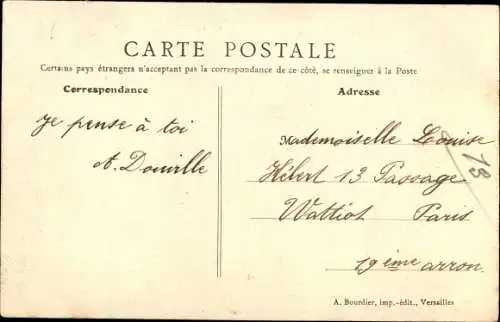 CARTE POSTALE
Certains pays étrangers n'acceptant pas la correspondance de ce côté, se renseigner à la Poste
Correspondance
Je pense à toi
A. Douville
Adresse
Mademoiselle Louise
Hébert 13 Passage
Wattiot Paris
19ème arron.
13
A. Bourdier, imp.-édit., Versailles